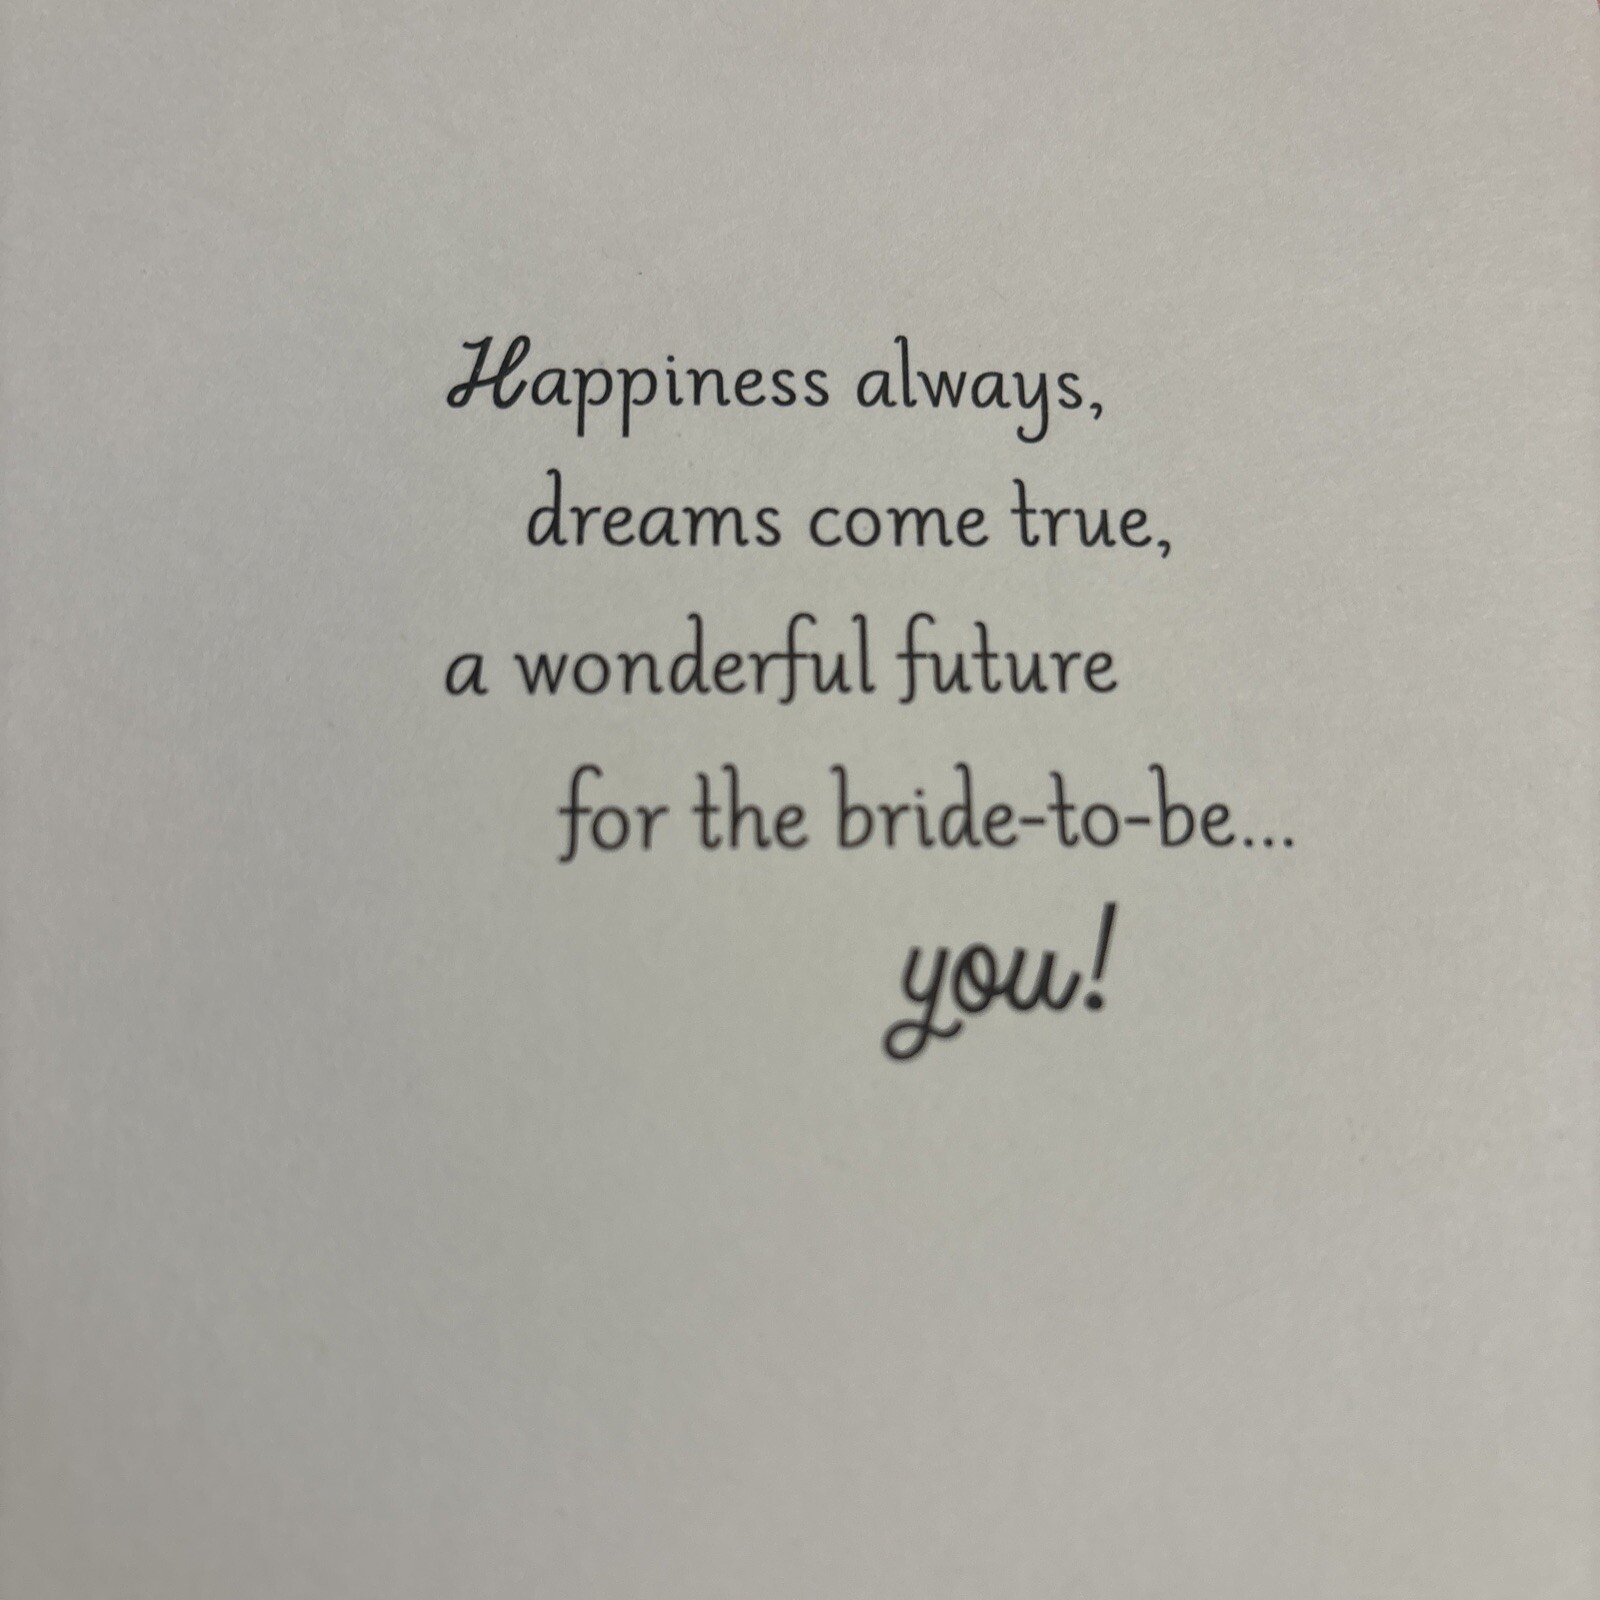 Happiness always,
dreams come true,
a wonderful future
for the bride-to-be...
you!